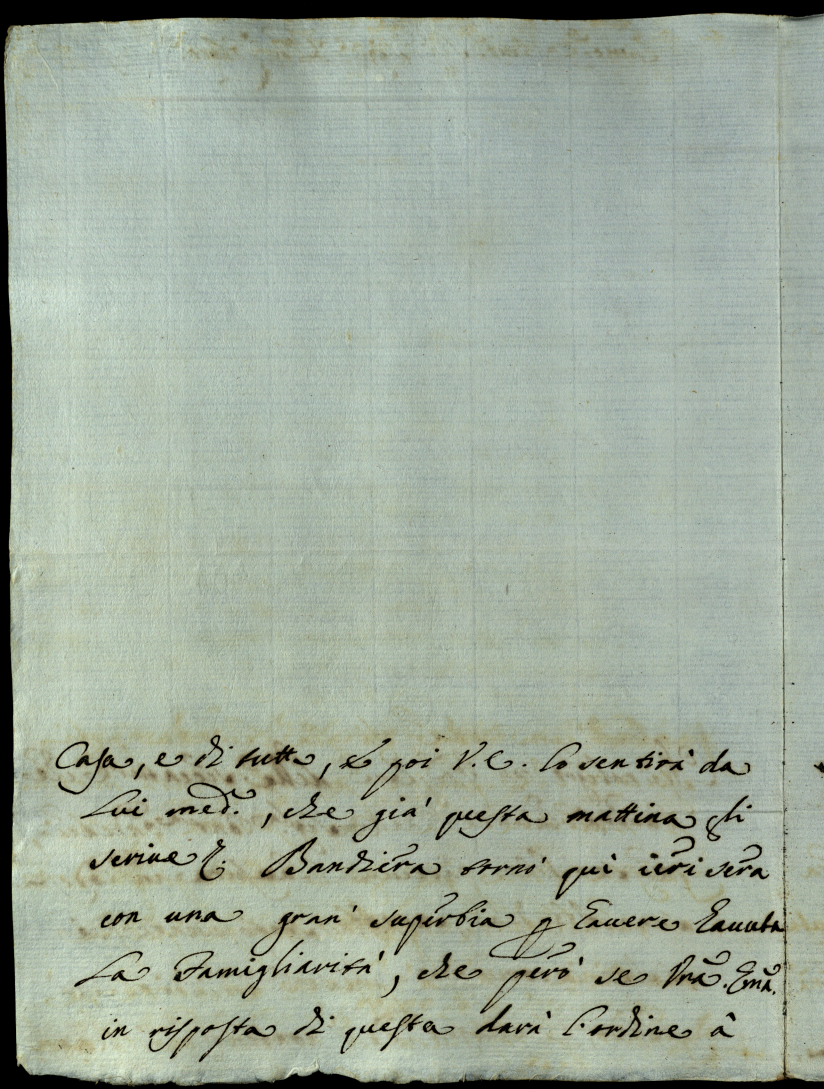 Casa, e di tutta, e poi V.E. lo sentirà da
Lui med.º, che già questa mattina gli
scrive. Bandiera tornò quì ieri sera
con una gran' superbia p hauere hauuta
La Famigliarità, che però se Vrã. Emã.
in risposta di questa darà l'ordine â